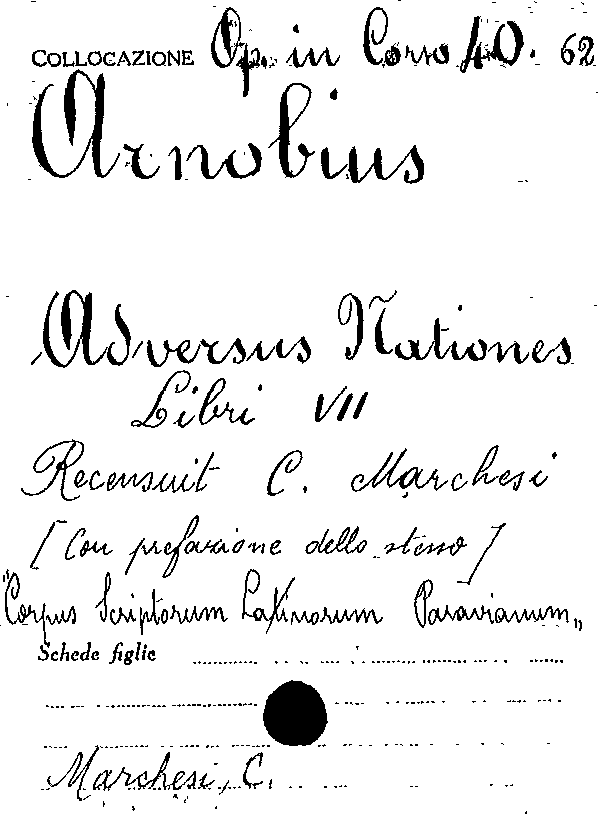 COLLOCAZIONE Op. in Corso 40. 62
Arnobius
Adversus Nationes
Libri VII
Recensuit C. Marchesi
[Con prefazione dello stesso]
"Corpus Scriptorum Latinorum Paravianum„
Schede figlie
Marchesi, C.